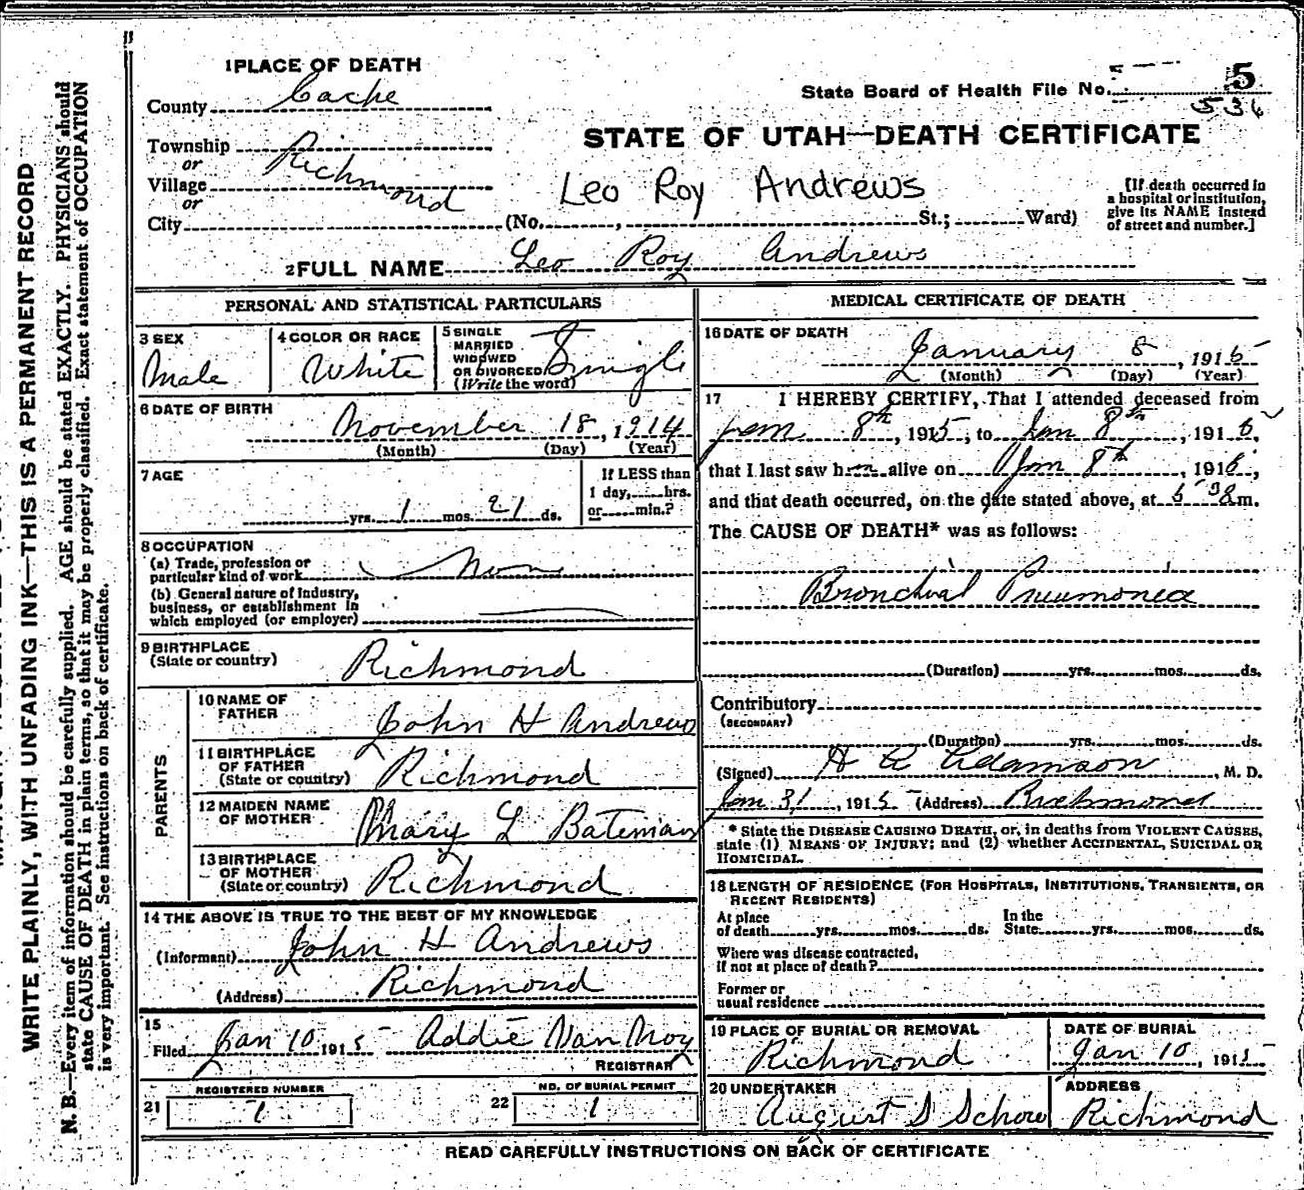 1 PLACE OF DEATH
County Cache
State Board of Health File No. 5
536
STATE OF UTAH—DEATH CERTIFICATE
Township
or
Village Richmond
or
City (No. , St.; Ward)
Leo Roy Andrews
[If death occurred in
a hospital or institution,
give its NAME instead
of street and number.]
2 FULL NAME Leo Roy Andrews
PERSONAL AND STATISTICAL PARTICULARS
3 SEX
Male
4 COLOR OR RACE
White
5 SINGLE
MARRIED
WIDOWED
OR DIVORCED
(Write the word)
Single
6 DATE OF BIRTH
November 18, 1914
(Month) (Day) (Year)
7 AGE
yrs. 1 mos. 21 ds.
If LESS than
1 day, hrs.
or min.?
8 OCCUPATION
(a) Trade, profession or
particular kind of work None
(b) General nature of Industry,
business, or establishment in
which employed (or employer)
9 BIRTHPLACE
(State or country) Richmond
PARENTS
10 NAME OF
FATHER John H Andrews
11 BIRTHPLACE
OF FATHER
(State or country) Richmond
12 MAIDEN NAME
OF MOTHER Mary L Bateman
13 BIRTHPLACE
OF MOTHER
(State or country) Richmond
14 THE ABOVE IS TRUE TO THE BEST OF MY KNOWLEDGE
(Informant) John H Andrews
(Address) Richmond
15
Filed Jan 10 1915 Addie Van Noy
REGISTRAR
REGISTERED NUMBER
21 1
NO. OF BURIAL PERMIT
22 1
MEDICAL CERTIFICATE OF DEATH
16 DATE OF DEATH
January 8, 1915
(Month) (Day) (Year)
17 I HEREBY CERTIFY, That I attended deceased from
Jan 8th, 1915, to Jan 8th, 1915,
that I last saw h alive on Jan 8th, 1915,
and that death occurred, on the date stated above, at m.
The CAUSE OF DEATH* was as follows:
Bronchial Pneumonia
(Duration) yrs. mos. ds.
Contributory
(SECONDARY)
(Duration) yrs. mos. ds.
(Signed) Adamson, M. D.
Jan 31, 1915 (Address) Richmond
* State the DISEASE CAUSING DEATH, or, in deaths from VIOLENT CAUSES,
state (1) MEANS OF INJURY; and (2) whether ACCIDENTAL, SUICIDAL OR
HOMICIDAL.
18 LENGTH OF RESIDENCE (FOR HOSPITALS, INSTITUTIONS, TRANSIENTS, OR
RECENT RESIDENTS)
At place
of death yrs. mos. ds.
In the
State yrs. mos. ds.
Where was disease contracted,
if not at place of death?
Former or
usual residence
19 PLACE OF BURIAL OR REMOVAL
Richmond
DATE OF BURIAL
Jan 10, 1915
20 UNDERTAKER
August S Schow
ADDRESS
Richmond
READ CAREFULLY INSTRUCTIONS ON BACK OF CERTIFICATE
WRITE PLAINLY, WITH UNFADING INK—THIS IS A PERMANENT RECORD
N. B.—Every item of information should be carefully supplied. AGE should be stated EXACTLY. PHYSICIANS should
state CAUSE OF DEATH in plain terms, so that it may be properly classified. Exact statement of OCCUPATION
is very important. See instructions on back of certificate.